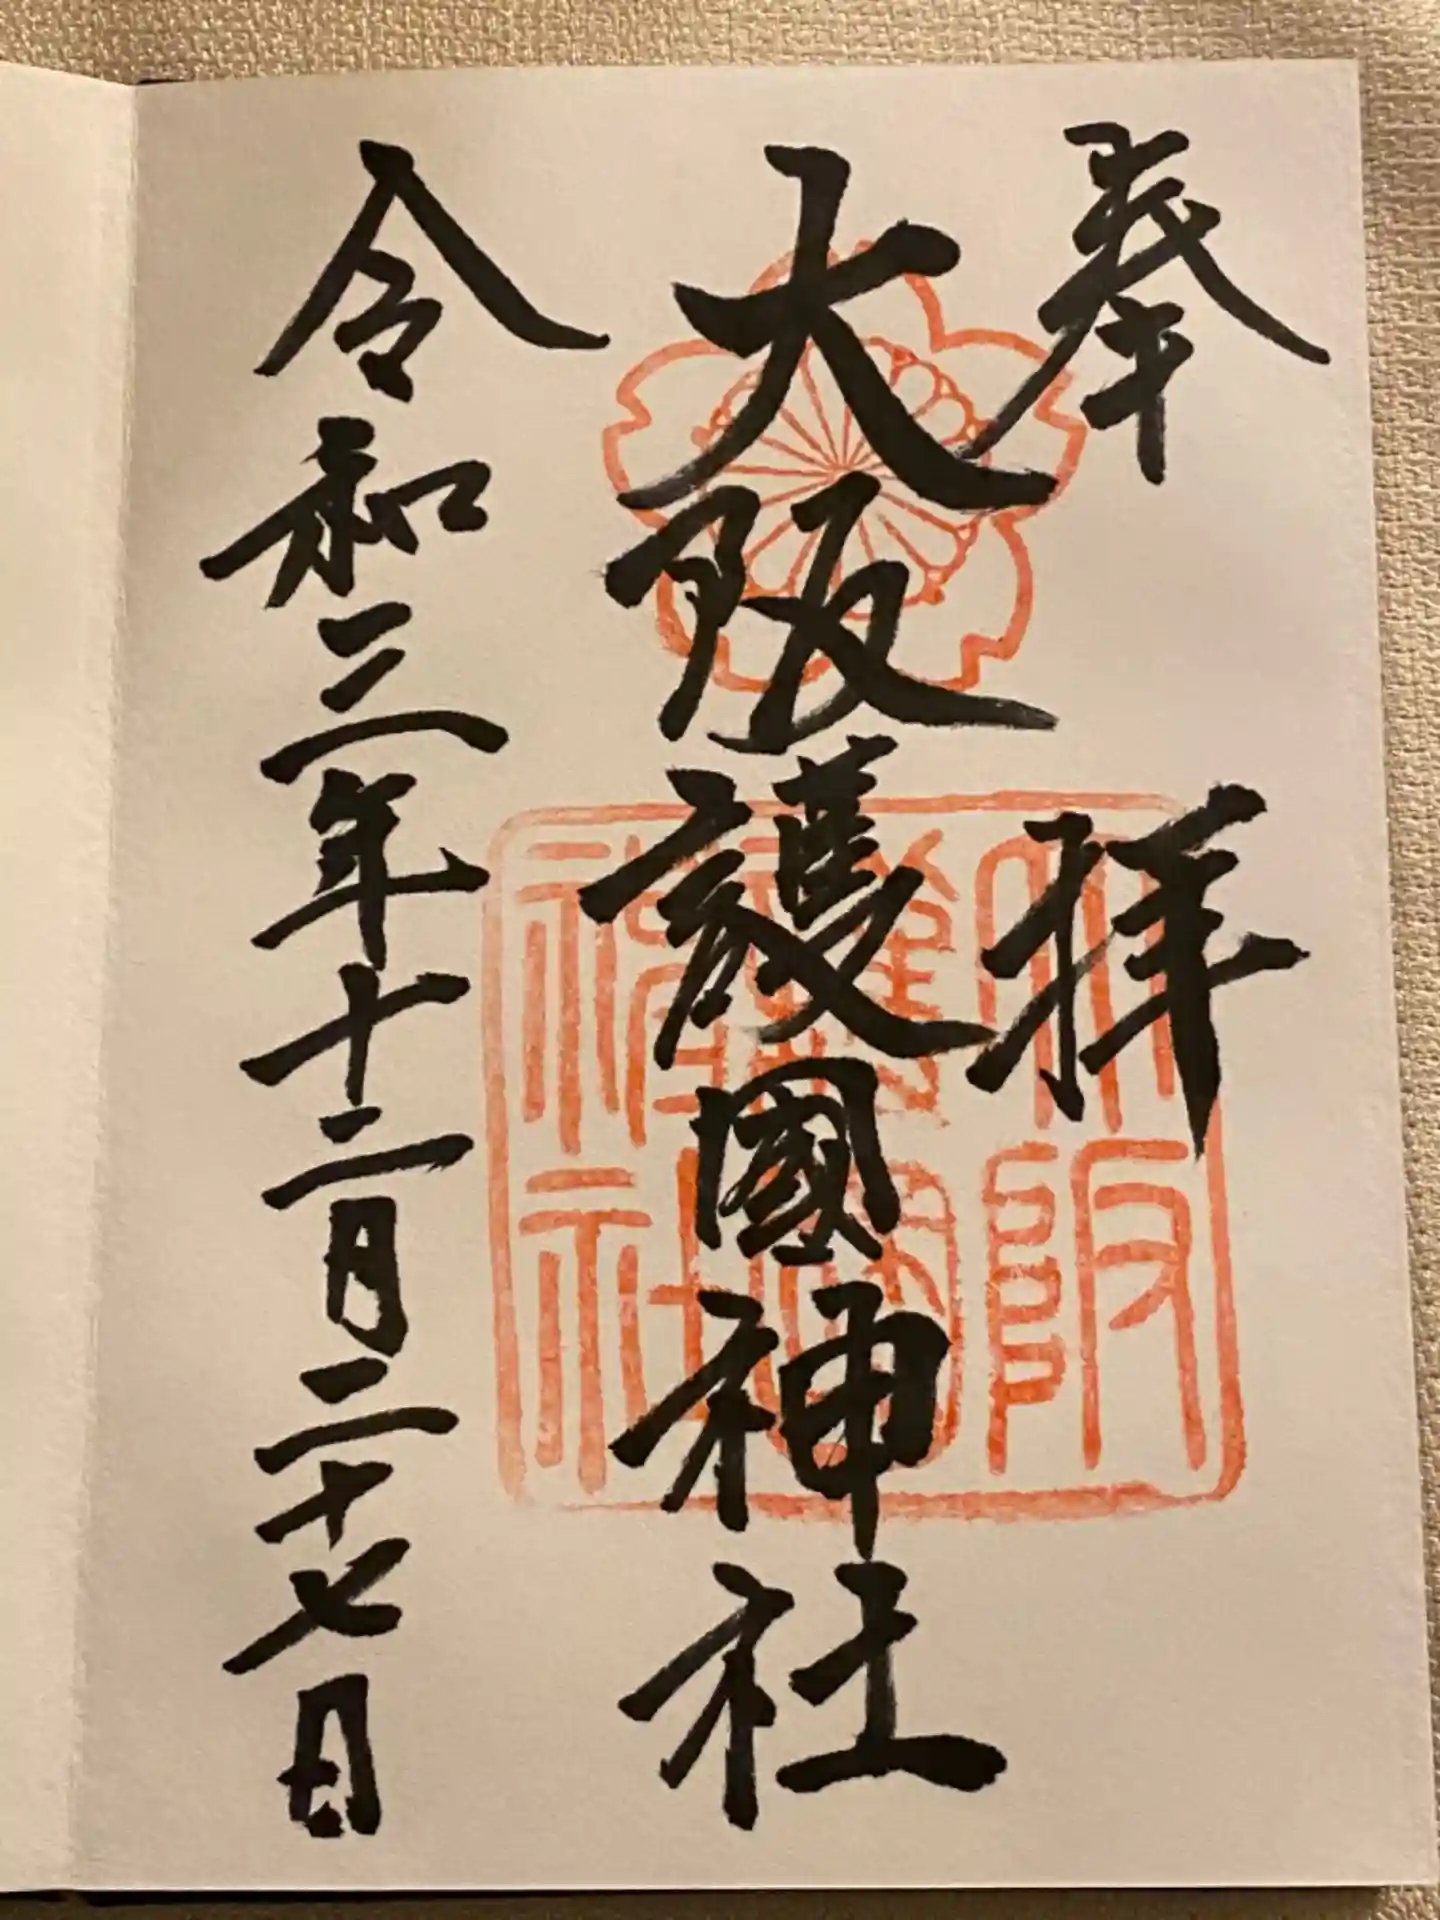 奉拝
大阪護國神社
大阪護國神社
令和三年十二月二十七日